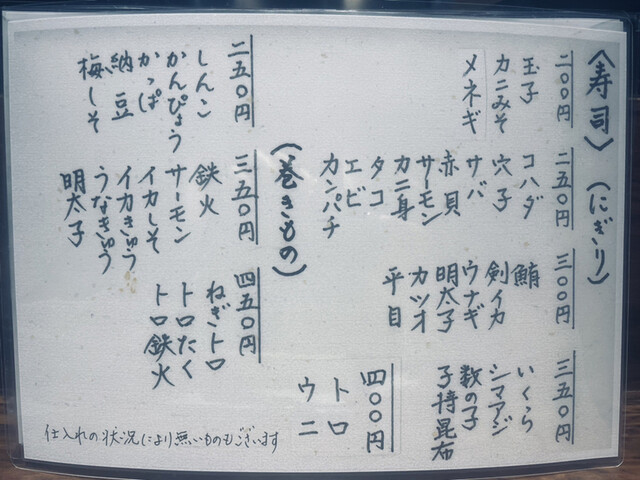 〈寿司〉(にぎり)
二〇〇円
玉子
カニみそ
メネギ
二五〇円
コハダ
穴子
サバ
赤貝
サーモン
カニ身
タコ
エビ
カンパチ
三〇〇円
鮪
剣イカ
ウナギ
明太子
カツオ
平目
三五〇円
いくら
シマアジ
数の子
子持昆布
四〇〇円
トロ
ウニ
(巻きもの)
二五〇円
しんこ
かんぴょう
かっぱ
納豆
梅しそ
三五〇円
鉄火
サーモン
イカしそ
イカきゅう
うなきゅう
明太子
四五〇円
ねぎトロ
トロたく
トロ鉄火
仕入れの状況により無いものもございます